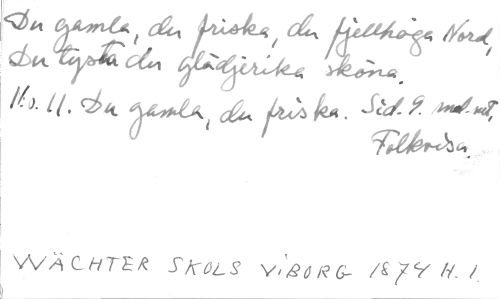 Du gamla, du friska, du fjellhöga Nord,
Du tysta du glädjerika sköna.
No. 11. Du gamla, du friska. Sid. 9. mel. not,
Folkvisa.
WÄCHTER SKOLS VIBORG 1874 H. 1.